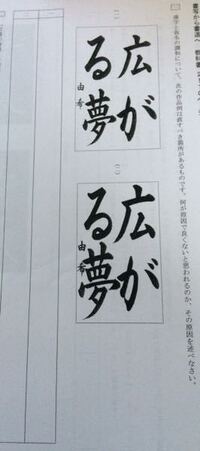 書写から書道へ 教科書
漢字と仮名の調和について、次の作品例は直すべき箇所があるものです。何が原因で良くないと思われるのか、その原因を述べなさい。
広が
る夢
由希
広が
る夢
由希